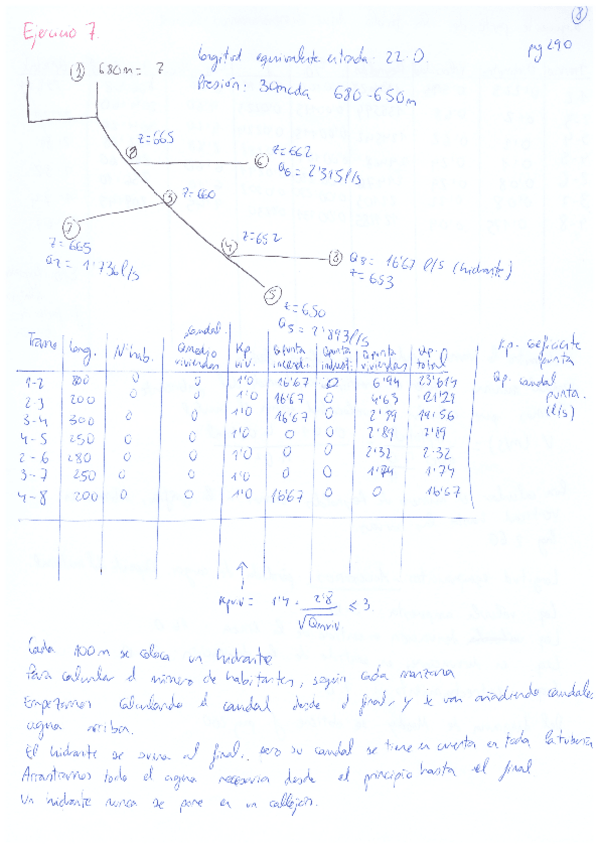 8
Ejercicio 7.
Longitud equivalente entrada: 22·D
pg 290
1 680m = ?
Presión: 30mcda 680-650m
z=665
2
6 z=662
Q6 = 2'315 l/s
3 z=660
7
z=665
Q7 = 1'736 l/s
4 z=652
8 Q8 = 16'67 l/s (hidrante)
z=653
5 z=650
Q5 = 2'893 l/s
Tramo Long. Nº hab. Caudal Qmedio viviendas Kp viv. Q punta incendi. Q punta industri. Q punta viviendas Qp. total
1-2 800 0 0 1'0 16'67 0 6'94 23'614
2-3 200 0 0 1'0 16'67 0 4'63 21'29
3-4 300 0 0 1'0 16'67 0 2'89 19'56
4-5 250 0 0 1'0 0 0 2'89 2'89
2-6 280 0 0 1'0 0 0 2'32 2'32
3-7 250 0 0 1'0 0 0 1'74 1'74
4-8 200 0 0 1'0 16'67 0 0 16'67
Kp. coeficiente punta
Qp. caudal punta. (l/s)
Kpviv = 1'4 · 2'8 / √Qmviv ≤ 3
Cada 100m se coloca un hidrante
Para calcular el número de habitantes, según cada manzana
Empezamos calculando el caudal desde el final, y se van añadiendo caudales
aguas arriba.
El hidrante se suma al final, pero su caudal se tiene en cuenta en toda la tubería
Arrastramos todo el agua necesaria desde el principio hasta el final
Un hidrante nunca se pone en un callejón.